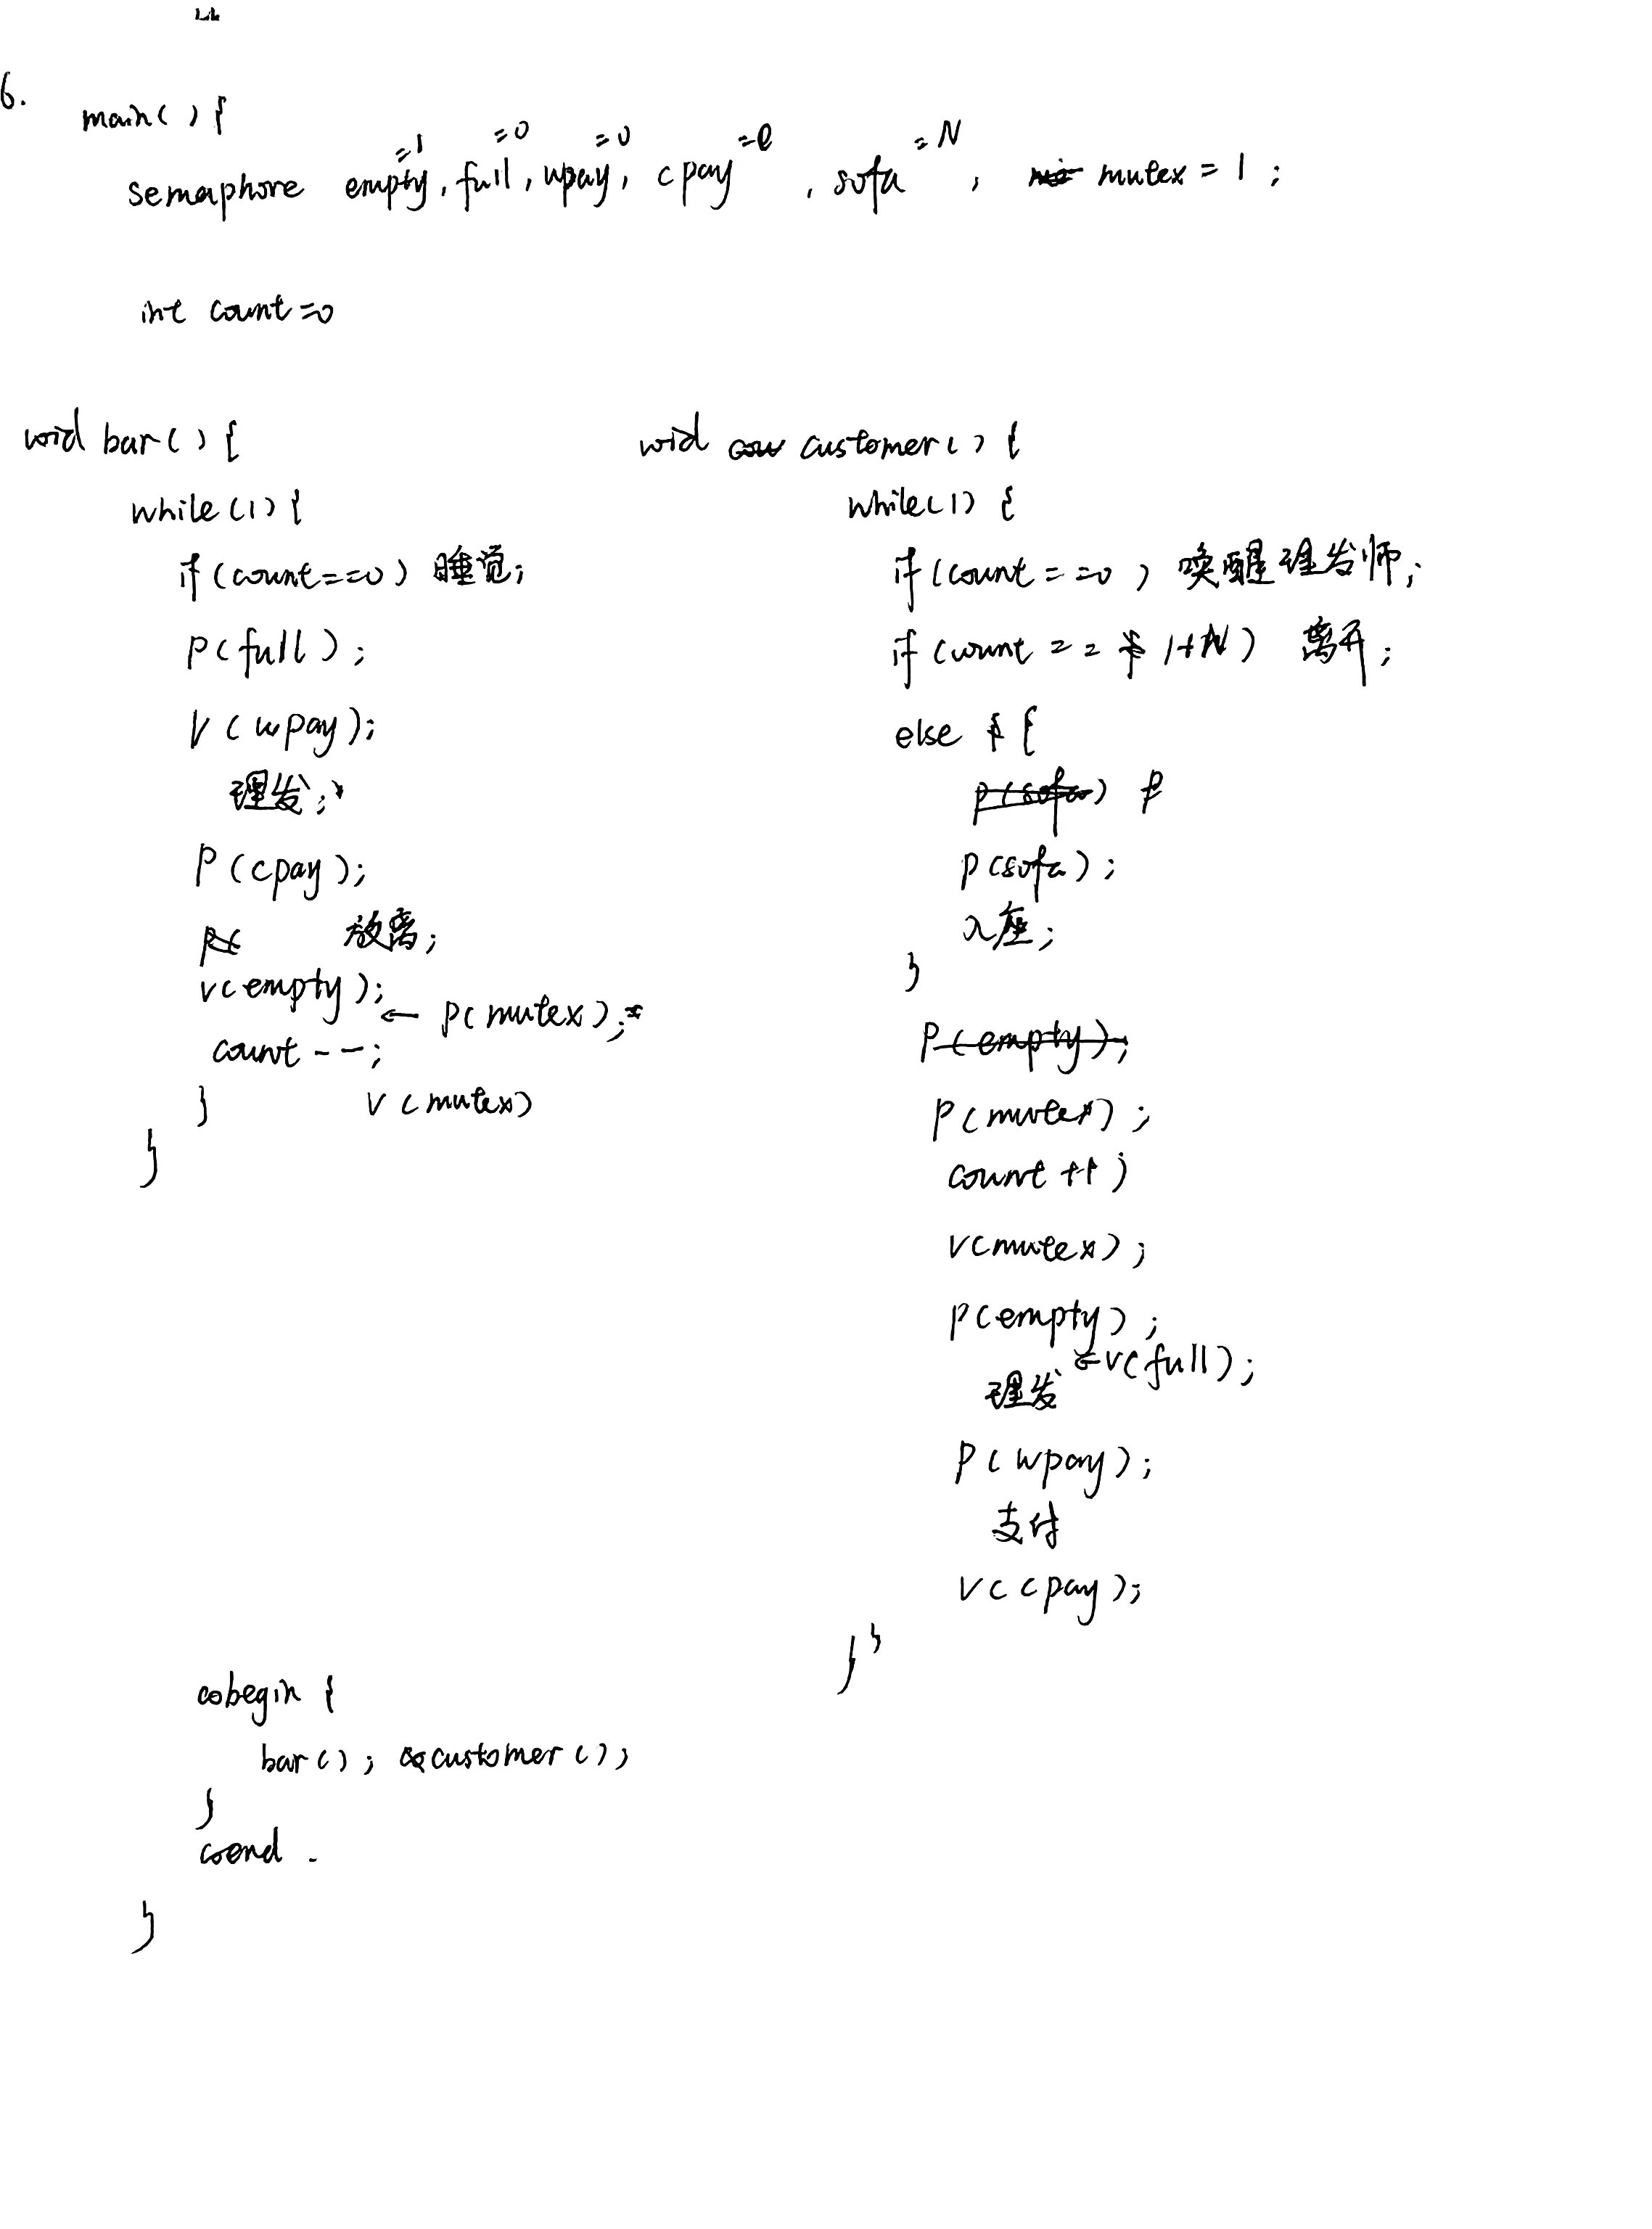 6.
main() {
semaphore empty=1, full=0, wpay=0, cpay=0, sofa=N, mutex=1;
int count=0
void bar() {
while(1) {
if(count==0) 睡觉;
P(full);
V(wpay);
理发;
P(cpay);
放离;
V(empty);
← P(mutex);
count--;
V(mutex)
}
}
void customer() {
while(1) {
if(count==0) 唤醒理发师;
if(count==1+N) 离开;
else {
P(sofa);
入座;
}
P(mutex);
count++;
V(mutex);
P(empty);
←V(full);
理发
P(wpay);
支付
V(cpay);
}
}
cobegin {
bar(); customer();
}
coend.
}